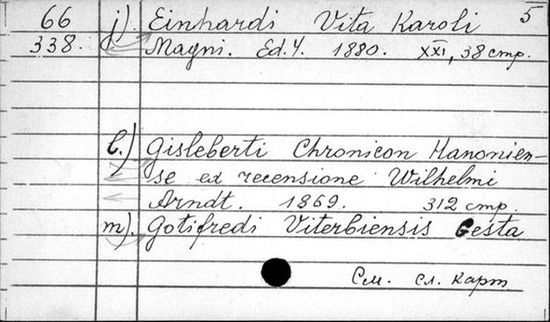 66 j) Einhardi Vita Karoli 5
338. Magni. Ed. 4. 1880. XXI, 38 стр.
l.) Gisleberti Chronicon Hanonien-
se ex recensione Wilhelmi
Arndt. 1869. 312 стр.
m). Gotifredi Viterbiensis Gesta
См. сл. карт